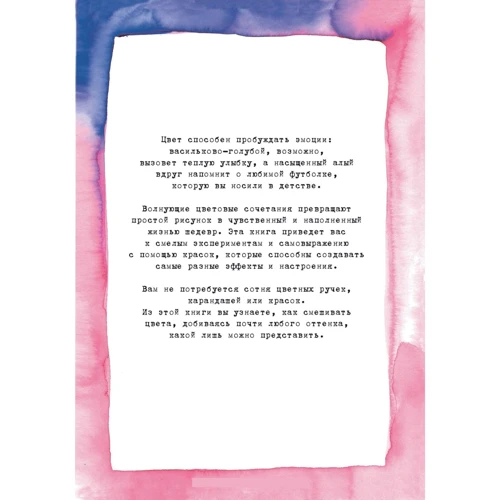 Цвет способен пробуждать эмоции:
васильково-голубой, возможно,
вызовет теплую улыбку, а насыщенный алый
вдруг напомнит о любимой футболке,
которую вы носили в детстве.
Волнующие цветовые сочетания превращают
простой рисунок в чувственный и наполненный
жизнью шедевр. Эта книга приведет вас
к смелым экспериментам и самовыражению
с помощью красок, которые способны создавать
самые разные эффекты и настроения.
Вам не потребуется сотня цветных ручек,
карандашей или красок.
Из этой книги вы узнаете, как смешивать
цвета, добиваясь почти любого оттенка,
какой лишь можно представить.